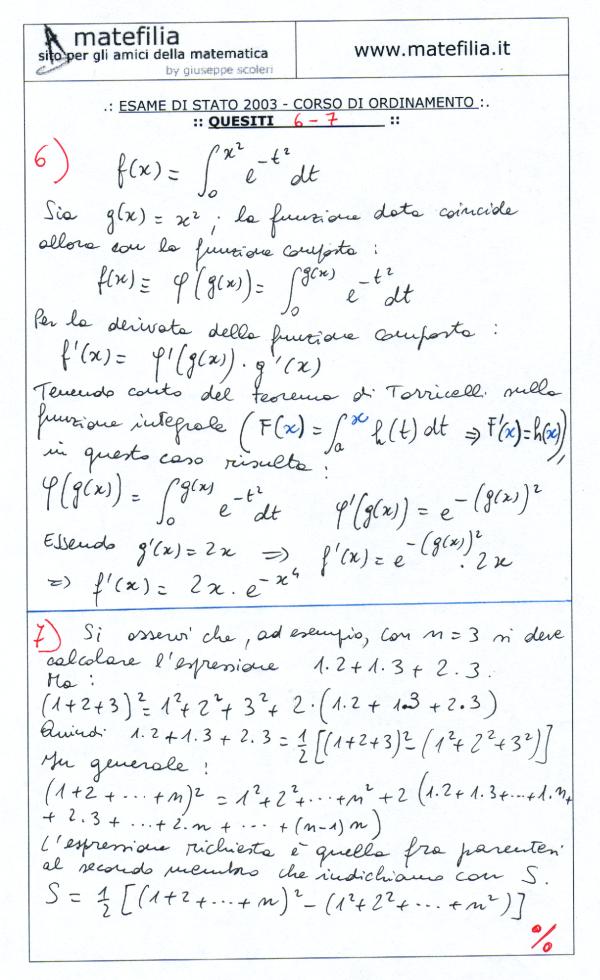 matefilia
sito per gli amici della matematica
by giuseppe scoleri
www.matefilia.it
.: ESAME DI STATO 2003 - CORSO DI ORDINAMENTO :.
:: QUESITI 6-7 ::
6) f(x) = ∫₀^{x²} e^{-t²} dt
Sia g(x) = x² ; la funzione data coincide
allora con la funzione composta :
f(x) ≡ φ(g(x)) = ∫₀^{g(x)} e^{-t²} dt
Per la derivata della funzione composta :
f'(x) = φ'(g(x)) · g'(x)
Tenendo conto del teorema di Torricelli sulla
funzione integrale (F(x) = ∫ₐ^x h(t) dt ⇒ F'(x) = h(x)),
in questo caso risulta :
φ(g(x)) = ∫₀^{g(x)} e^{-t²} dt φ'(g(x)) = e^{-(g(x))²}
Essendo g'(x) = 2x ⇒ f'(x) = e^{-(g(x))²} · 2x
⇒ f'(x) = 2x · e^{-x⁴}
7) Si osservi che, ad esempio, con n = 3 si deve
calcolare l'espressione 1·2 + 1·3 + 2·3.
Ma :
(1+2+3)² = 1² + 2² + 3² + 2·(1·2 + 1·3 + 2·3)
Quindi 1·2 + 1·3 + 2·3 = ½ [(1+2+3)² - (1² + 2² + 3²)]
In generale :
(1+2+ ··· +n)² = 1² + 2² + ··· + n² + 2 (1·2 + 1·3 + ··· + 1·n +
+ 2·3 + ··· + 2·n + ··· + (n-1) n)
L'espressione richiesta è quella fra parentesi
al secondo membro che indichiamo con S.
S = ½ [(1+2+ ··· +n)² - (1² + 2² + ··· + n²)]
%